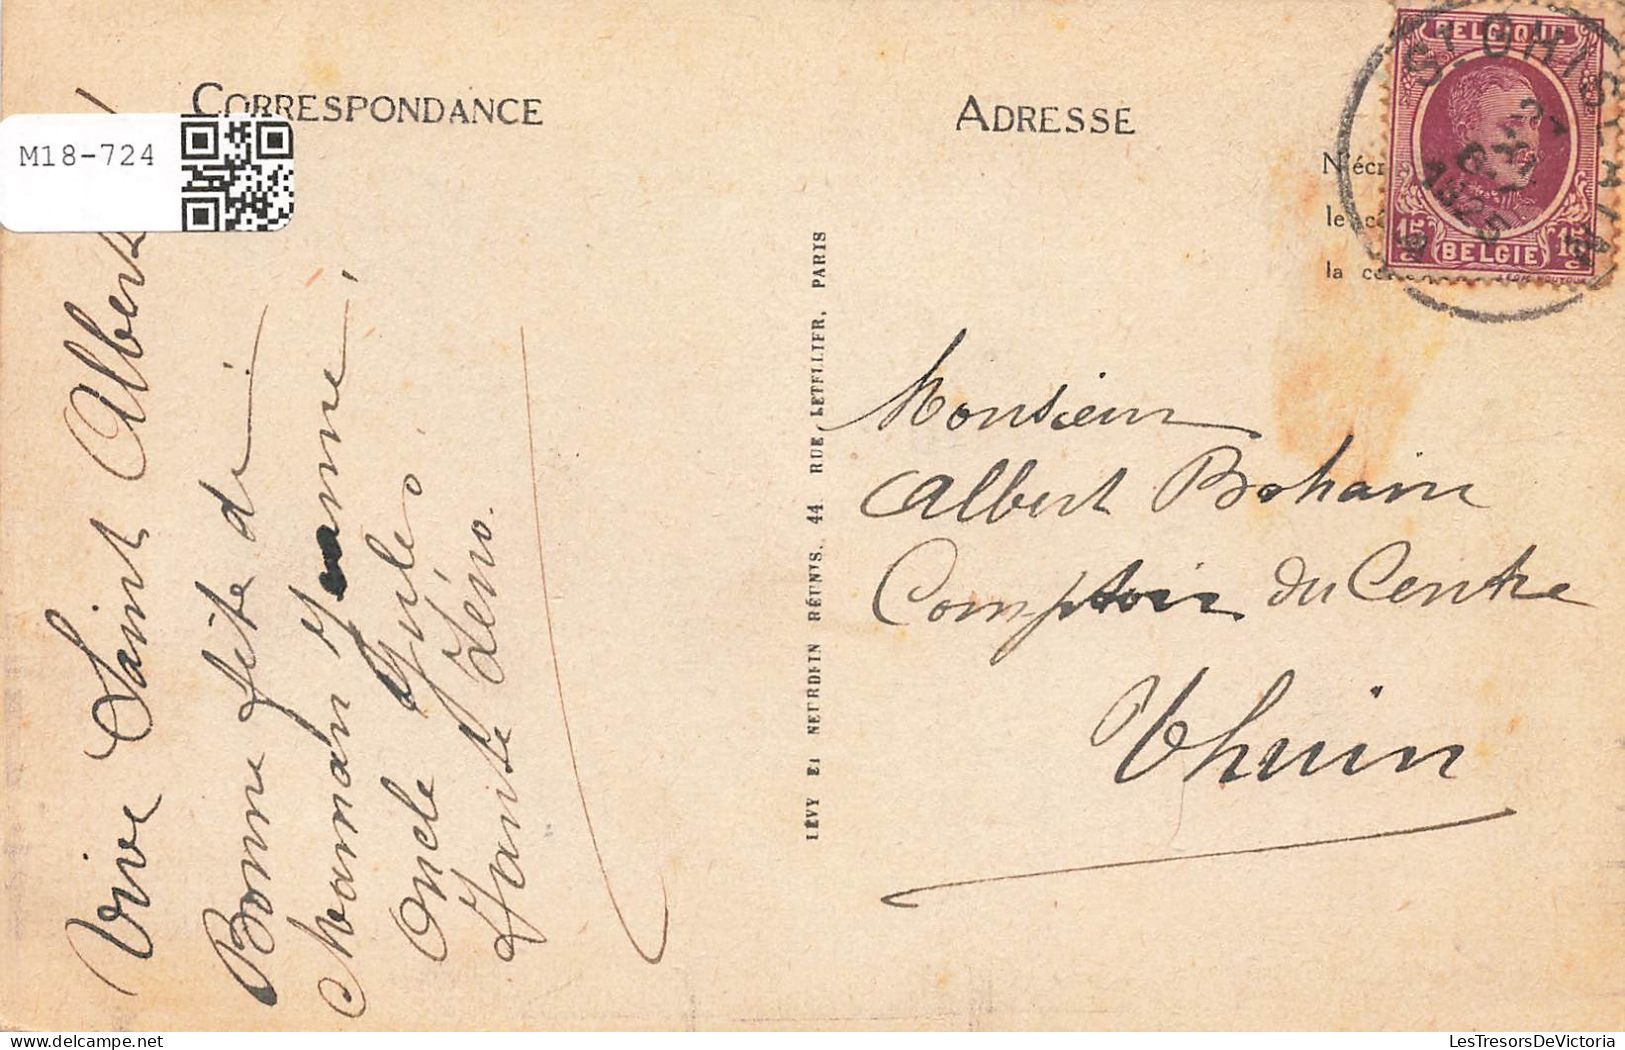 CORRESPONDANCE
M18-724
Vive Saint Albert !
Bonne fête de
Maman Jeanne,
Oncle Jules
Tante Léno.
LÉVY ET NEURDEIN RÉUNIS, 44 RUE LETELLIER, PARIS
ADRESSE
N'écr
le c
la c
BELGIQUE
BELGIE
15 15
ST-GHISLAIN
1925
Monsieur
Albert Bohain
Comptoir du Centre
Thuin
LesTresorsDeVictoria